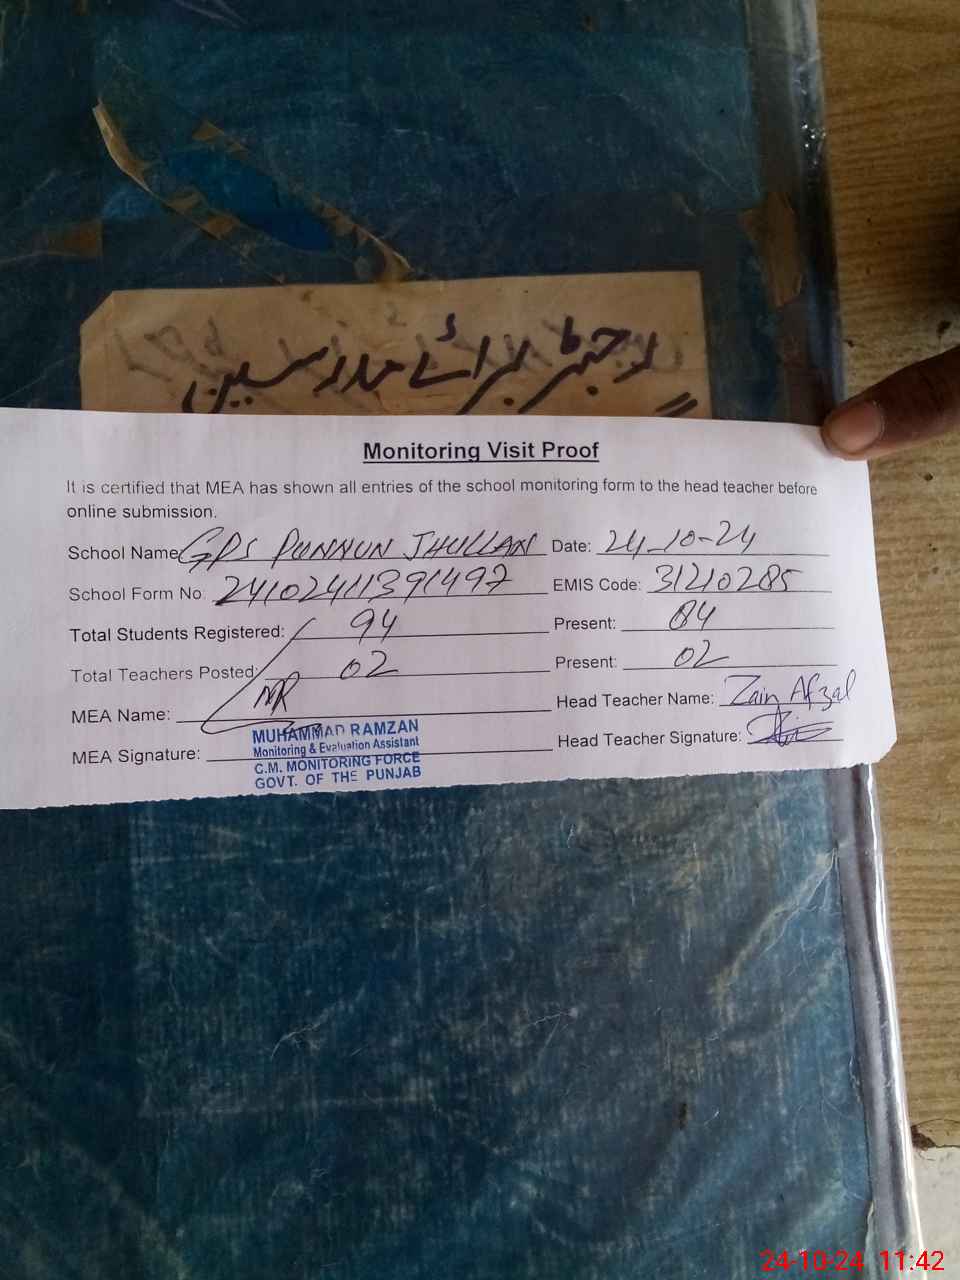 رجسٹر برائے مدرسین
Monitoring Visit Proof
It is certified that MEA has shown all entries of the school monitoring form to the head teacher before
online submission.
School Name GPS PUNNUN JHULLAN Date: 24-10-24
School Form No: 24102411391497 EMIS Code: 31210285
Total Students Registered: 94 Present: 84
Total Teachers Posted: 02 Present: 02
MEA Name: MR Head Teacher Name: Zain Afzal
MEA Signature: Head Teacher Signature:
MUHAMMAD RAMZAN
Monitoring & Evaluation Assistant
C.M. MONITORING FORCE
GOVT. OF THE PUNJAB
24-10-24 11:42